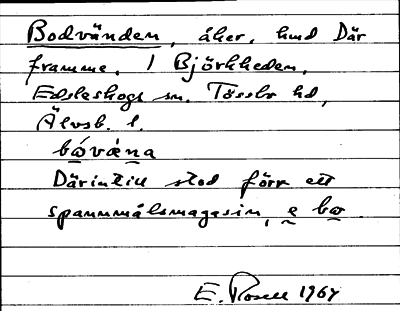 Bodvänden, åker, hmd Där
framme. / Björkheden,
Edsleskogs sn. Tössbo hd,
Älvsb. l.
bǿvæ̀na
Därintill stod förr ett
spannmålsmagasin, e bø
E. Rosell 1964